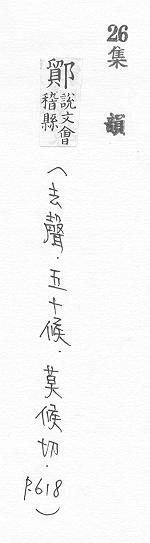 26
集韻
鄮說文會
稽縣
(去聲.五十候.莫候切.
P.618)